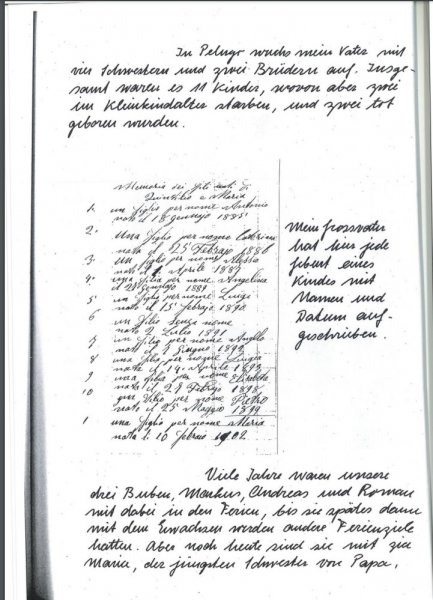 In Pelugo wuchs mein Vater mit
vier Schwestern und zwei Brüdern auf. Insge-
samt waren es 11 Kinder, wovon aber zwei
im Kleinkindalter starben, und zwei tot
geboren wurden.
Memoria dei figli nati di
e Maria
1. un figlio per nome Antonio
nato il 18 gennajo 1885
2. una figlia per nome
nata il 25 Febrajo 1886
3. un figlio per nome
nato il 1 Aprile 1887
4. una figlia per nome Angelina
il 28 Genajo 1889
5 un figlio per nome Luigi
nato il 15 febrajo 1890
6 un filio Senza nome
nato 2 Lulio 1891
7 un filio per nome Angelo
nato il 9 Giugno 1892
8 una filia per nome Luigia
nata il 14 Aprile 1895
9 una filia per nome Elisabeta
nata il 27 Febrajo 1898
10 un filio per nome Pietro
nato il 25 Maggio 1899
1 una figlia per nome Maria
nata il 10 febraio 1902
Mein Grossvater
hat hier jede
Geburt eines
Kindes mit
Namen und
Datum auf-
geschrieben.
Viele Jahre waren unsere
drei Buben, Markus, Andreas und Roman
mit dabei in den Ferien, bis sie später dann
mit dem Erwachsen werden andere Ferienziele
hatten. Aber noch heute sind sie mit zia
Maria, der jüngsten Schwester von Papa,